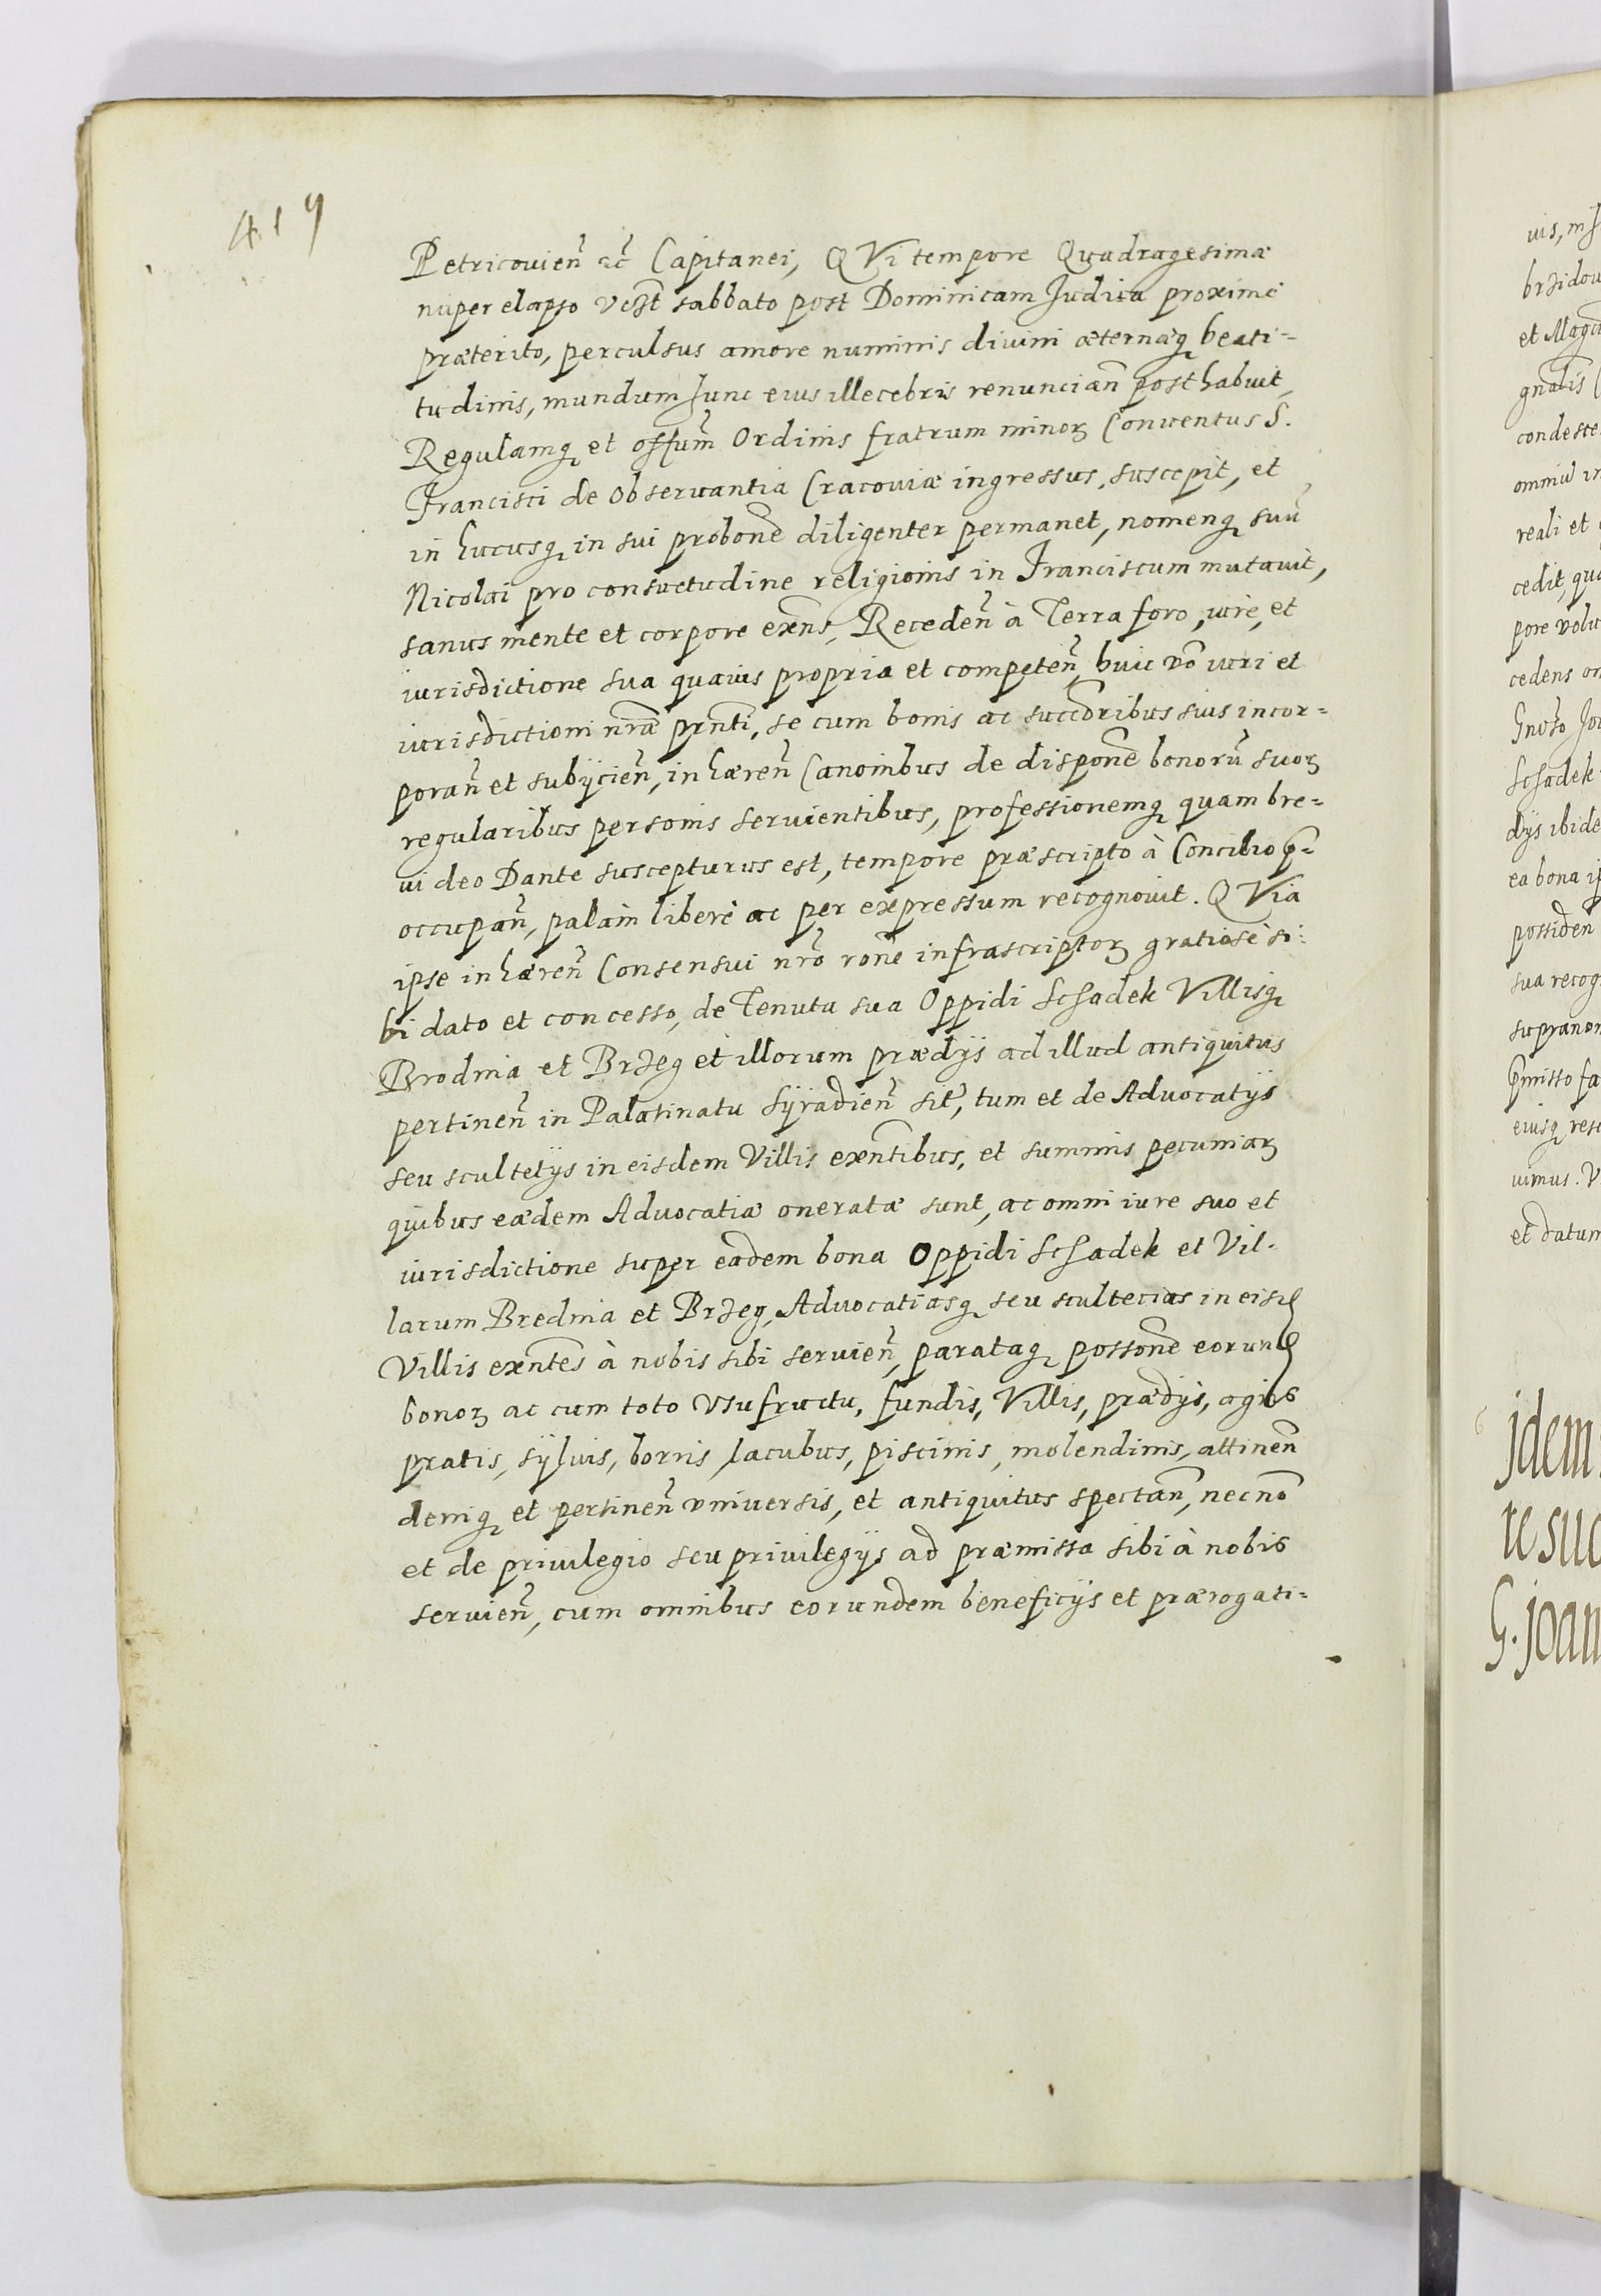 419
Petricovieñ ac̃ Capitanei, QVi tempore Quadragesimæ
nuper elapso vc̃zt sabbato post Dominicam Judica proximè
præterito, perculsus amore numinis divini æternæq beati=
tudinis, mundum hunc eius illecebris renuncian̄ posthabuit,
Regulamq et offum̃ Ordinis fratrum minoꝝ Conventus S.
Francisci de Observantia Cracoviæ ingressus, suscepit, et
in hucusq in sui probone᷃ diligenter permanet, nomenq suũ
Nicolai pro consuetudine religionis in Franciscum mutavit,
sanus mente et corpore exẽns, Recedeñ à Terra foro, iure, et
iurisdictione sua quavis propria et competeñ, huic võ iuri et
iurisdictioni nr̃æ prñti, se cum bonis ac succ̃oribus suis incor=
porañ et subijcieñ, inhæreñ Canonibus de dispone᷃ bonorũ suoꝝ
regularibus personis servientibus, professionemq quam bre=
vi deo Dante suscepturus est, tempore præscripto à Concilio p̃=
occupañ, palàm liberè ac per expressum recognovit. QVia
ipse inhæreñ Consensui nr̃o rõne infrascriptoꝝ gratiosè si=
bi dato et concesso, de Tenuta sua Oppidi Schadek Villisq
Brodnia et Brzeg et illorum prædijs ad illud antiquitus
pertineñ in Palatinatu Syradieñ sit̃, tum et de Advocatijs
seu scultetijs in eisdem Villis exñtibus, et summis pecuniaꝝ
quibus eædem Advocatiæ oneratæ sunt, ac omni iure suo et
iurisdictione super eadem bona Oppidi Schadek et Vil=
larum Brednia et Brzeg, Advocatiasq seu scultecias in eisd
Villis exñtes à nobis sibi servieñ, parataq possone᷃ eorund
bonoꝝ ac cum toto Vsufructu, fundis, Villis, prædijs, agris
pratis, sylvis, borris, lacubus, piscinis, molendinis, attineñ
deniq et pertineñ vniversis, et antiquitus spectañ, necnõ
et de privilegio seu privilegijs ad præmissa sibi à nobis
servieñ, cum omnibus eorundem beneficijs et prærogati=
et Mag
conde
omniũ in
reali et
cedit, qu
pore volu
cedens
Schadek
dijs ibide
ea bona
possideñ
sua recog
supra
eiusq
vimus. V
et datum
Jdem
te suc
G. Joan